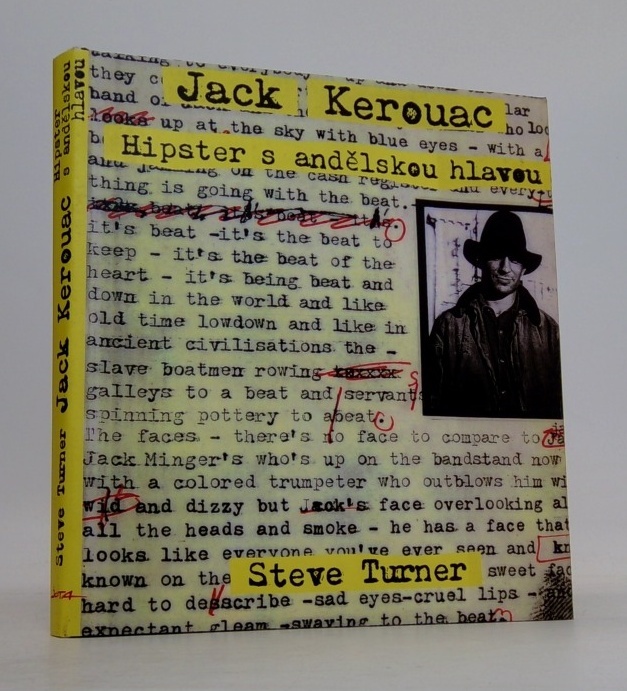 Hipster
s andělskou
hlavou
Jack Kerouac
Steve Turner
talking to everybody
they
band
Jack Kerouac
lar
looks up at the sky with blue eyes - with a
Hipster s andělskou hlavou
on the cash
thing is going with the beat.
it's beat -it's the beat to
keep - it's the beat of the
heart - it's being beat and
down in the world and like
old time lowdown and like in
ancient civilisations the -
slave boatmen rowing
galleys to a beat and servants
spinning pottery to abeat.
The faces - there's no face to compare to
Jack Minger's who's up on the bandstand now
with a colored trumpeter who outblows him
wild and dizzy but Jack's face overlooking
all the heads and smoke - he has a face that
looks like everyone you've ever seen and
known on the
Steve Turner
sweet
hard to describe -sad eyes-cruel lips -
expectant gleam -swaying to the beat